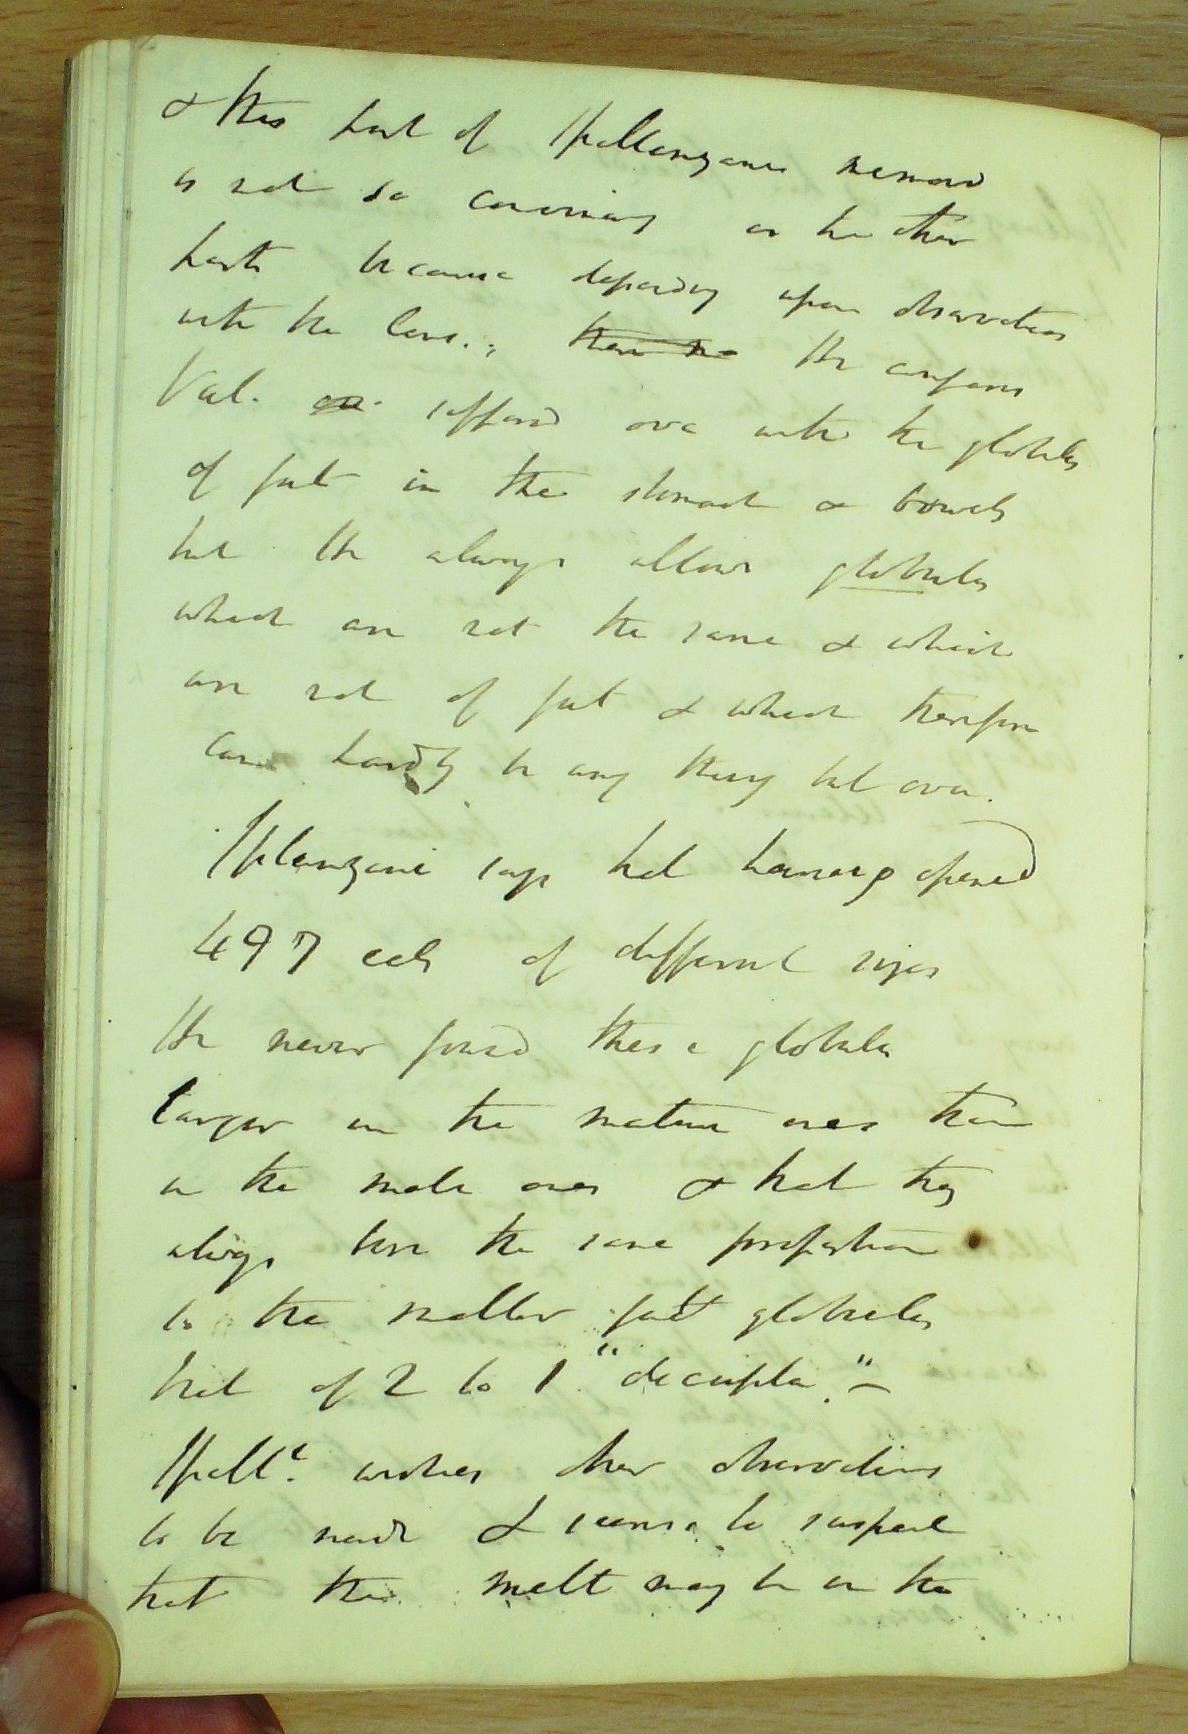 & this part of Spallanzanis memoir
is not so convincing as the other
parts because depending upon observations
with the lens.; there is He compares
Val. supposed ova with the globules
of fat in the stomach & bowels
but He always allows globules
which are not the same & which
are not of fat & which therefore
can hardly be any thing but ova.
Splanzani says that having opened
497 eels of different sizes
He never found these globules
larger in the mature ones than
in the small ones & that they
always bore the same proportion
to the smaller fat globules
that of 2 to 1 "decupla." –
Spall. wishes other observations
to be made & seems to suspect
that the melt may be in the